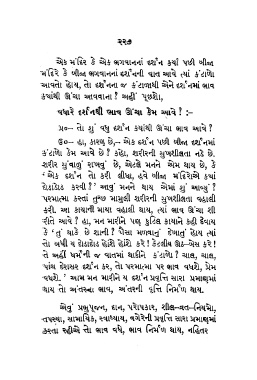 ૨૨૭
એક મંદિર કે એક ભગવાનનાં દર્શન કર્યા પછી બીજા
મંદિરે કે બીજા ભગવાનનાં દર્શનની વાત આવે ત્યાં કંટાળો
આવતો હોય, તો દર્શનના જ કંટાળાથી એને દર્શનમાં ભાવ
ક્યાંથી ઊંચા આવવાના ? અહીં પૂછશો,
વધારે દર્શનથી ભાવ ઊંચા કેમ આવે ? :-
પ્ર૦– તો શું વધુ દર્શન કર્યાથી ઊંચા ભાવ આવે ?
ઉ૦– હા, કારણ છે,– એક દર્શન પછી બીજા દર્શનમાં
કંટાળો કેમ આવે છે ? કહો, શરીરની સુખશીલતા નડે છે.
શરીર સુંવાળું રાખવું છે, એટલે મનને એમ થાય છે, કે
‘ એક દર્શન તો કરી લીધા, હવે બીજા મંદિરોએ ક્યાં
દોડાદોડ કરવી ?’ આવું મનને થાય એમાં શું આવ્યું ?
પરમાત્મા કરતાં તુચ્છ મામુલી શરીરની સુખશીલતા વહાલી
કરી. આ કાયાની માયા વહાલી થાય, ત્યાં ભાવ ઊંચા શી
રીતે આવે ? હા, મન મારીને પણ કુટિલ કાયાને કહી દેવાય
કે ‘તું થાકે છે શાની ? પૈસા મળવાનું દેખાતું હોય ત્યાં
તો બધી ય દોડાદોડ હોંશે હોંશે કરે ! કેટલીય ઊઠ-બેસ કરે !
તે અહીં ધર્મની જ વાતમાં થાકીને કંટાળે ? ચાલ, ચાલ,
પાંચ દેરાસર દર્શન કર, તો પરમાત્મા પર ભાવ વધશે, પ્રેમ
વધશે.’ આમ મન મારીને ય દર્શન પ્રવૃત્તિ સારા પ્રમાણમાં
થાય તો અંતરના ભાવ, અંતરની વૃત્તિ નિર્મળ થાય.
એવું પ્રભુપૂજન, દાન, પરોપકાર, શીલ–વ્રત–નિયમો,
તપસ્યા, સામાયિક, સ્વાધ્યાય, વગેરેની પ્રવૃત્તિ સારા પ્રમાણમાં
કરતા રહીએ તો ભાવ વધે, ભાવ નિર્મળ થાય, નહિતર